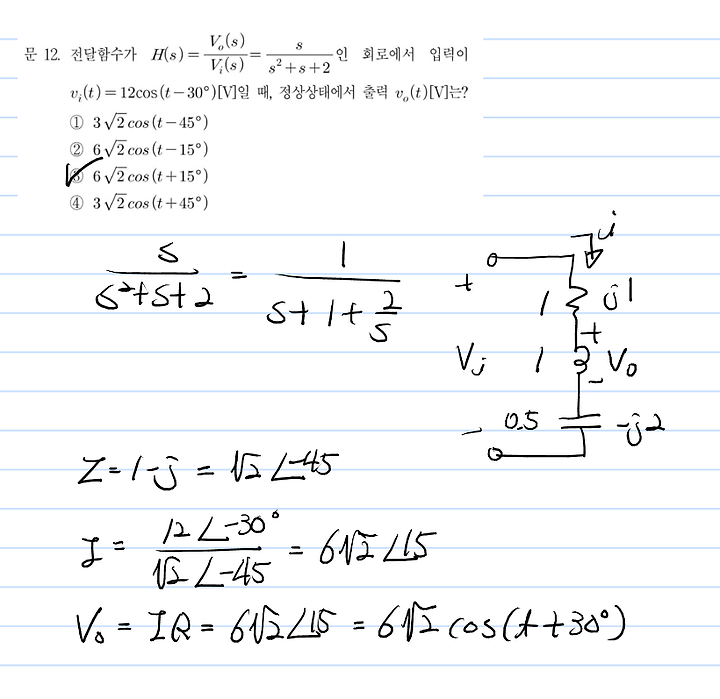 문 12. 전달함수가 H(s) = V_o(s)/V_i(s) = s/(s²+s+2) 인 회로에서 입력이
v_i(t) = 12cos(t-30°)[V]일 때, 정상상태에서 출력 v_o(t)[V]는?
① 3√2 cos(t-45°)
② 6√2 cos(t-15°)
③ 6√2 cos(t+15°)
④ 3√2 cos(t+45°)
s/(s²+s+2) = 1/(s+1+2/s)
i
+ 1 j1
+
Vi 1 Vo
-
- 0.5 -j2
Z = 1-j = √2∠-45
I = 12∠-30°/√2∠-45 = 6√2∠15
Vo = IR = 6√2∠15 = 6√2 cos(t+30°)